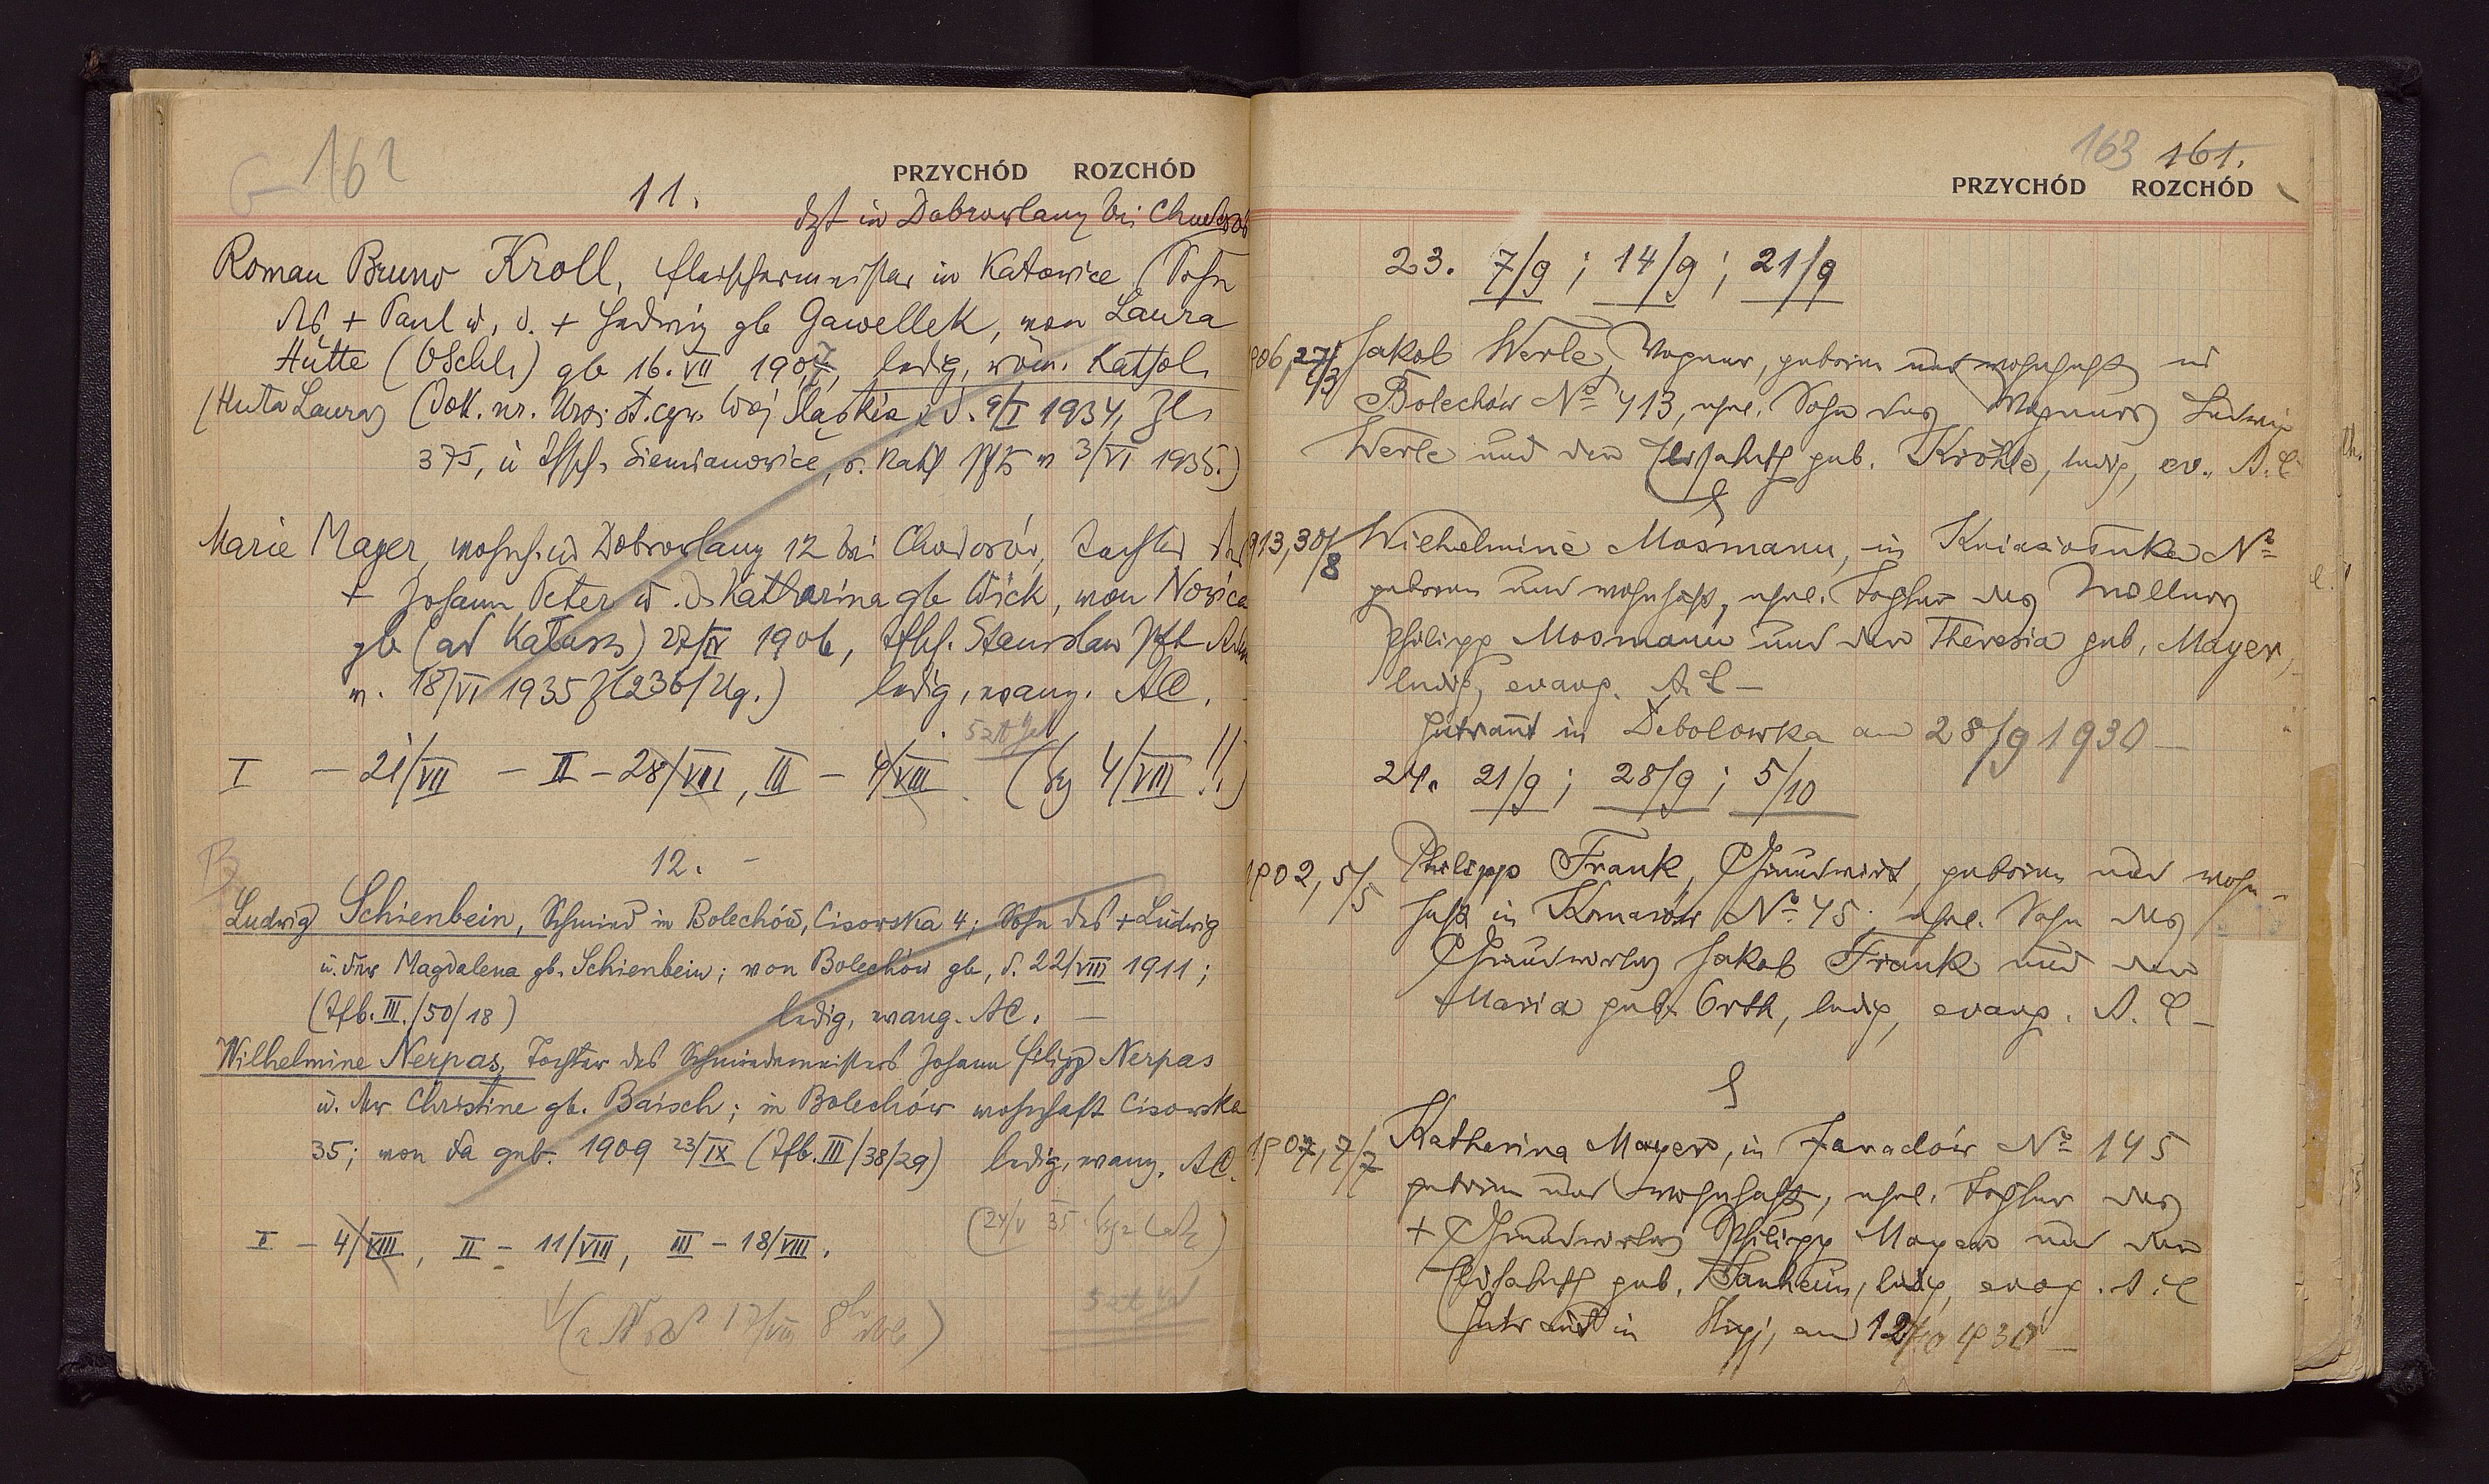 G 162
PRZYCHÓD ROZCHÓD
11.
dzt in Dobrowlany bei Chodorów
Roman Bruno Kroll, Fleischermeister in Katowice (Sohn
des + Paul u. d. + Hedwig gb Gawellek, von Laura
Hütte (OSchl.) gb 16. VII 1907, ledig, röm. Kathol.
(Huta Laura) (Dok. nr. Urz. st. cyw. Woj Śląskie, d. 9/I 1934, Zl.
375, u Siemianowice, 3/VI 1935.)
Marie Mayer, wohnh. in Dobrowlany 12 bei Chodorów, Tochter des
+ Johann Peter u. d. Katharina gb Wick, von Nowica
gb (ad Kałusz) 27/IV 1906, Stanislau
v. 18/VI 1935 Zl 236/Ug.) ledig, evang. AC.
5 zł
I – 21/VII – II – 28/VII, III – 4/VIII. 4/VIII !!)
B
12. –
Ludwig Schienbein, Schmied in Bolechów, Cisowska 4; Sohn des + Ludwig
u. der Magdalena gb. Schienbein; von Bolechów gb, d. 22/VIII 1911;
(Tfb. III./50/18) ledig, evang. AC. –
Wilhelmine Nerpas, Tochter des Schmiedemeisters Johann Filipp Nerpas
u. der Christine gb. Baisch; in Bolechów wohnhaft Cisowska
35; von da geb. 1909 23/IX (Tfb. III/38/29) ledig, evang. AC.
(24/V 35
I – 4/VIII, II – 11/VIII, III – 18/VIII.
5 zł
17/VIII
163 161.
PRZYCHÓD ROZCHÓD
23. 7/9 ; 14/9 ; 21/9
906, 27/3 Jakob Werle, Wagner, geboren und wohnhaft in
Bolechów No 413, ehel. Sohn des Wagners Ludwig
Werle und der Elisabeth geb. Kröhle, ledig, ev. A. C
&
913, 30/8 Wilhelmine Mosmann, in Kniaziołuka No
geboren und wohnhaft, ehel. Tochter des Müllers
Philipp Mosmann und der Theresia geb. Mayer,
ledig, evang. A. C –
Getraut in Debolowka am 28/9 1930 –
24. 21/9 ; 28/9 ; 5/10
1902, 5/5 Philipp Frank, Grundwirt, geboren und wohn-
haft in Komarów No 45, ehel. Sohn des
Grundwirtes Jakob Frank und der
Maria geb. Orth, ledig, evang. A. C –
&
1907, 7/7 Katharina Mayer, in No 145
geboren und wohnhaft, ehel. Tochter des
+ Grundwirtes Philipp Mayer und der
Elisabeth geb. Tanheim, ledig, evag. A. C
Getraut in Stryj, am 12/10 1930 –